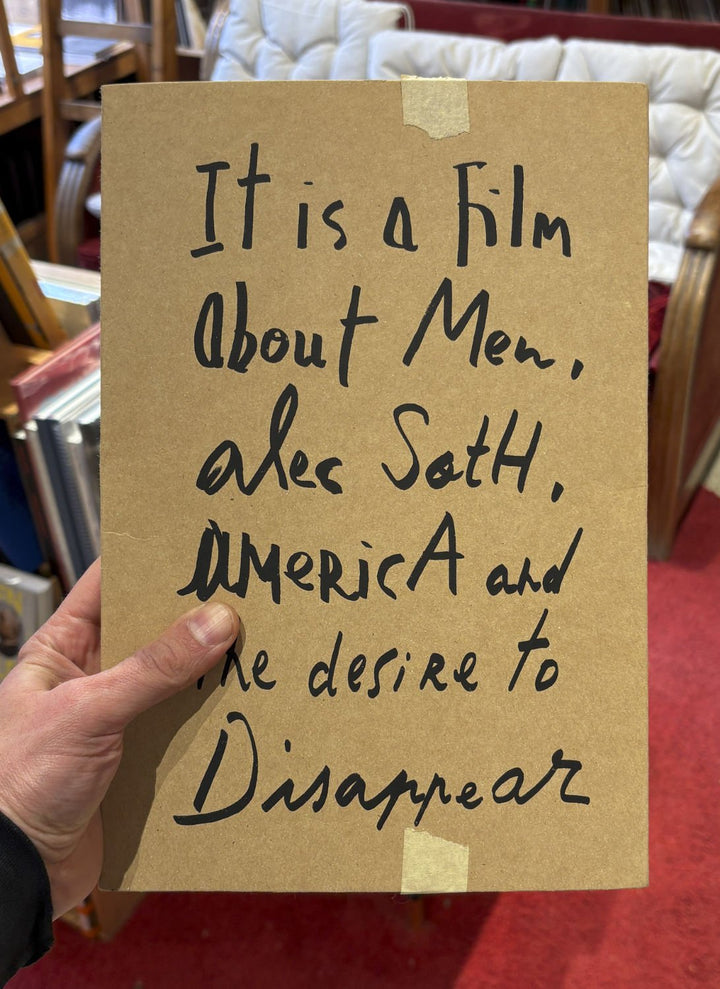 It is a Film
About Men,
alec SotH,
AMericA and
the desire to
Disappear